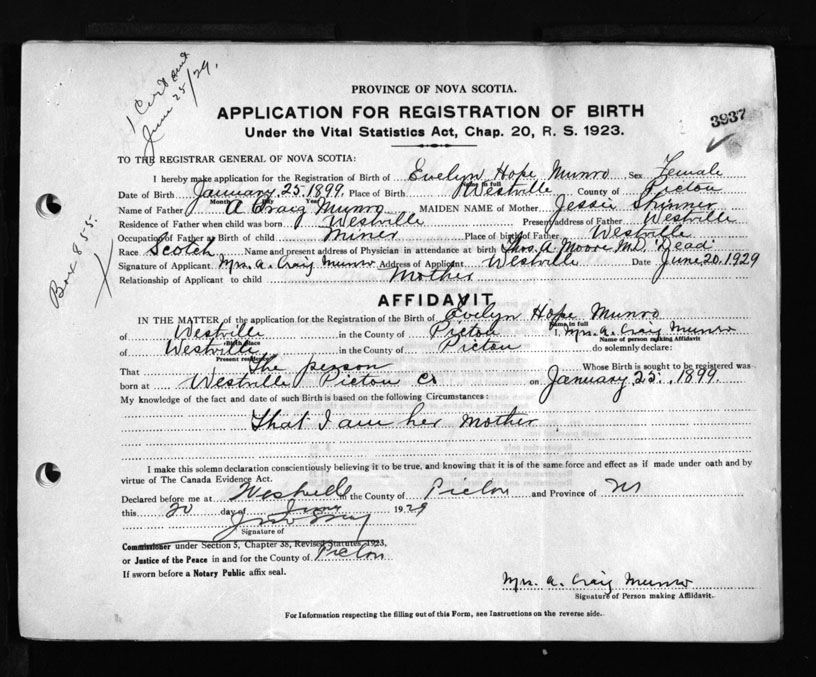 1 Cert sent
June 25/29.
3937
PROVINCE OF NOVA SCOTIA.
APPLICATION FOR REGISTRATION OF BIRTH
Under the Vital Statistics Act, Chap. 20, R. S. 1923.
TO THE REGISTRAR GENERAL OF NOVA SCOTIA:
I hereby make application for the Registration of Birth of Evelyn Hope Munro Sex Female
Name in full
Date of Birth January 25 1899 Place of Birth Westville County of Pictou
Month Day Year
Name of Father A Craig Munro MAIDEN NAME of Mother Jessie Skinner
Residence of Father when child was born Westville Present address of Father Westville
Occupation of Father at Birth of child Miner Place of birth of Father Westville
Race Scotch Name and present address of Physician in attendance at birth Thos. A. Moore MD. "Dead"
Signature of Applicant Mrs. A. Craig Munro Address of Applicant Westville Date June 20. 1929
Relationship of Applicant to child Mother
Box 855.
AFFIDAVIT
IN THE MATTER of the application for the Registration of the Birth of Evelyn Hope Munro
Name in full
of Westville in the County of Pictou I, Mrs. A. Craig Munro
Birth place Name of person making Affidavit
of Westville in the County of Pictou do solemnly declare:
Present residence
That The person Whose Birth is sought to be registered was
born at Westville Pictou Co on January 25. 1899.
My knowledge of the fact and date of such Birth is based on the following Circumstances:
That I am her mother
I make this solemn declaration conscientiously believing it to be true, and knowing that it is of the same force and effect as if made under oath and by
virtue of The Canada Evidence Act.
Declared before me at Westville in the County of Pictou and Province of NS
this 20 day of June 1929
Signature of
Commissioner under Section 5, Chapter 38, Revised Statutes, 1923,
or Justice of the Peace in and for the County of Pictou
If sworn before a Notary Public affix seal.
Mrs. A. Craig Munro
Signature of Person making Affidavit.
For Information respecting the filling out of this Form, see Instructions on the reverse side.